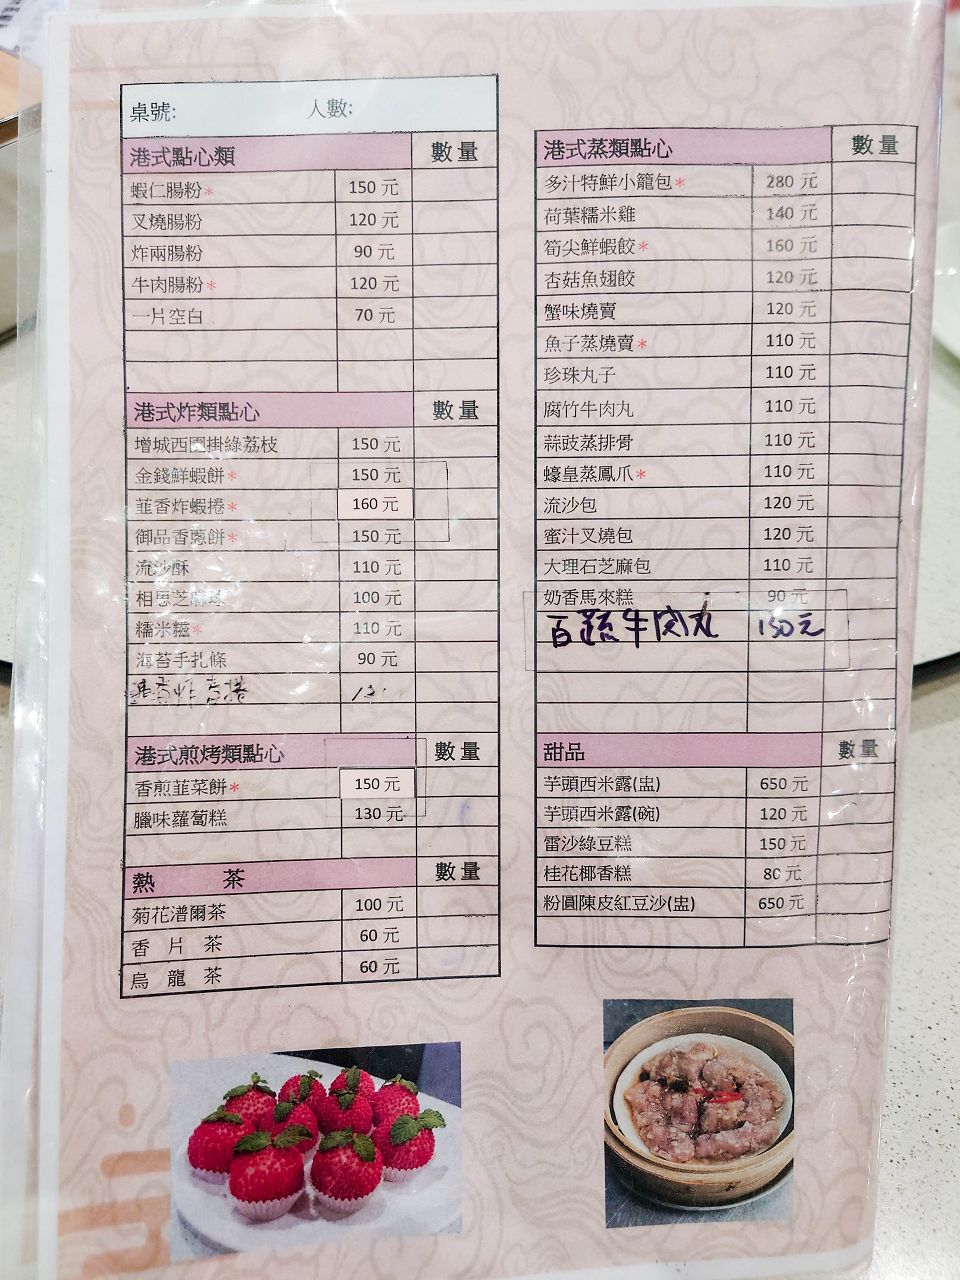 桌號: 人數:
港式點心類 數量
蝦仁腸粉* 150 元
叉燒腸粉 120 元
炸兩腸粉 90 元
牛肉腸粉* 120 元
一片空白 70 元
港式炸類點心 數量
增城西園掛綠荔枝 150 元
金錢鮮蝦餅* 150 元
韮香炸蝦捲* 160 元
御品香蔥餅* 150 元
流沙酥 110 元
相思芝麻球 100 元
糯米糍* 110 元
海苔手扎條 90 元
港式煎烤類點心 數量
香煎韮菜餅* 150 元
臘味蘿蔔糕 130 元
熱 茶 數量
菊花潽爾茶 100 元
香 片 茶 60 元
烏 龍 茶 60 元
港式蒸類點心 數量
多汁特鮮小籠包* 280 元
荷葉糯米雞 140 元
筍尖鮮蝦餃* 160 元
杏菇魚翅餃 120 元
蟹味燒賣 120 元
魚子蒸燒賣* 110 元
珍珠丸子 110 元
腐竹牛肉丸 110 元
蒜豉蒸排骨 110 元
蠔皇蒸鳳爪* 110 元
流沙包 120 元
蜜汁叉燒包 120 元
大理石芝麻包 110 元
奶香馬來糕 90 元
百蔬牛肉丸 130元
甜品 數量
芋頭西米露(盅) 650 元
芋頭西米露(碗) 120 元
雷沙綠豆糕 150 元
桂花椰香糕 80 元
粉圓陳皮紅豆沙(盅) 650 元